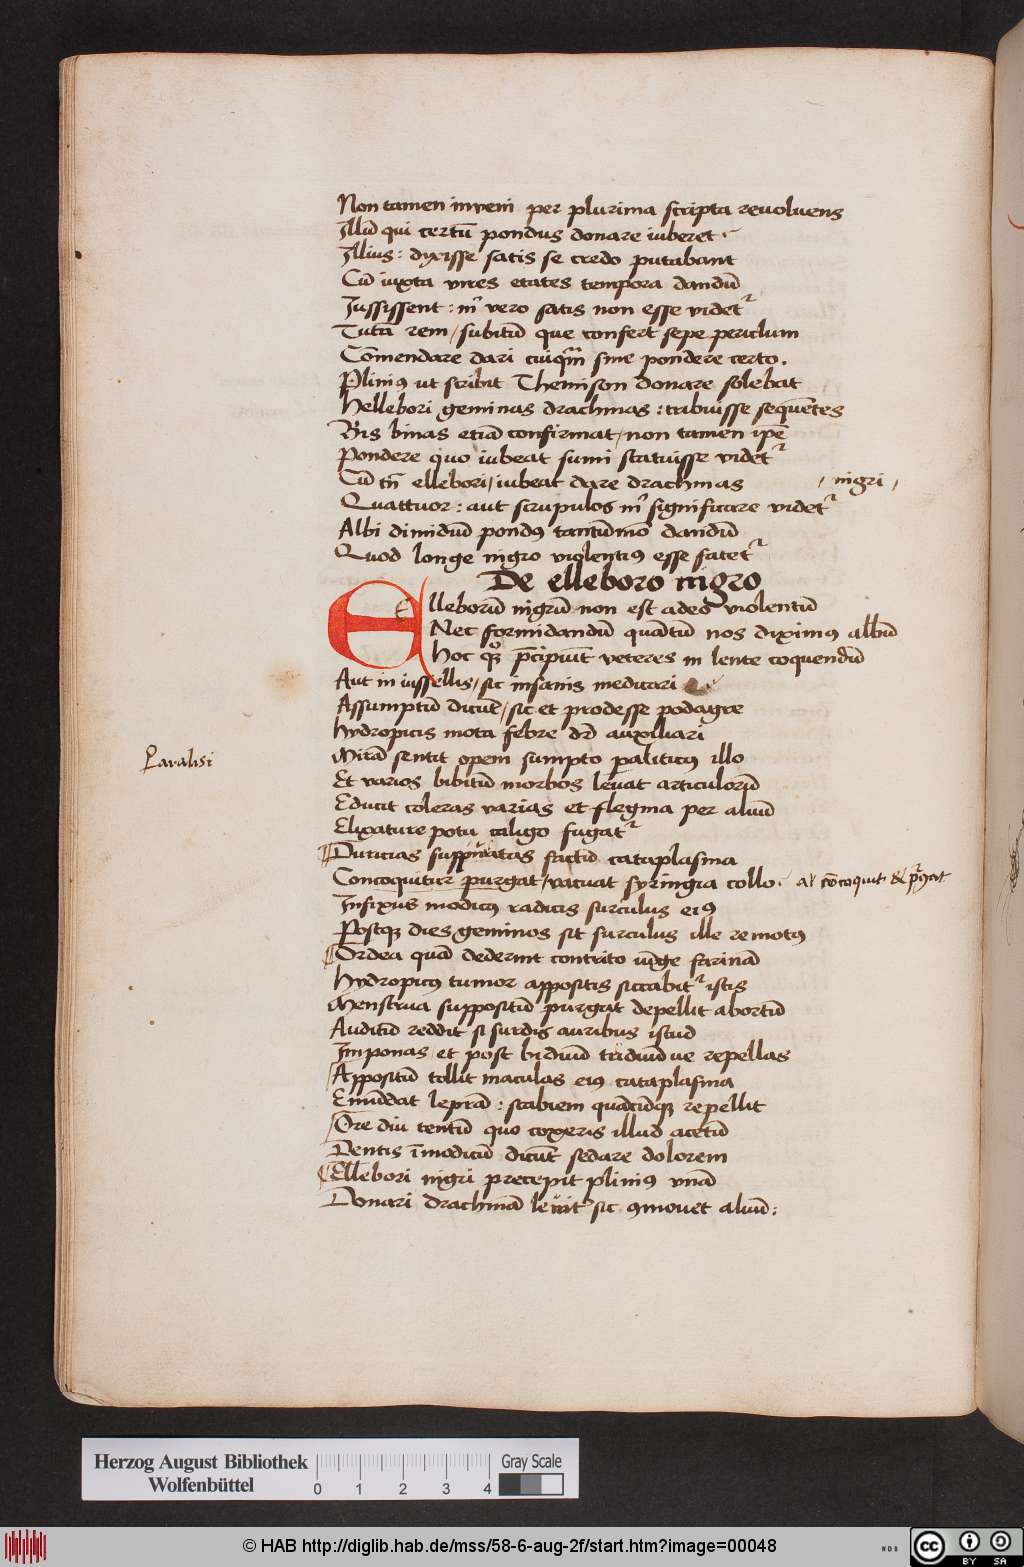 Non tamen inveni per plurima scripta revolvens
Illud qui certū pondus donare iuberet
Illius: dixisse satis se credo putabant
Cū iuxta vires etates tempora dandū
Iussissent: vero satis non esse videt
Tutā rem, subitū que confert sepe periclum
Cōmendare dari sine pondere certo.
Plini9 ut scribit Themison donare solebat
Hellebori geminas drachmas: tribuisse sequētes
Bis binas etiā confirmat, non tamen ipē
Pondere quo iubeat sumi statuisse videt
Cū tn̄ ellebori, iubeat dare drachmas , nigri,
Quattuor: aut scrupulos significare videt
Albi dimidiū pondus tantūmō dandū
Quod longe nigro violenti9 esse fatet
De elleboro nigro
Elleborū nigrū non est adeo violentū
Nec formidandū quātū nos dixim9 albū
Hoc veteres in lente coquendū
Aut in iussellis, sic insanis
Assumptū dicūt, sic et prodesse podagre
Hydropicis mota febre auxiliari
Mirā sentit opem sumpto paliticus illo
Paralisi
Et varios bibitū morbos levat articulorū
Educit coleras varias et flegma per alvū
potu caligo fugat
Duricias factū cataplasma
Concoquitur purgat, vacuat syringia collo. al cōcoquit &
Infixus modic9 radicis surculus ei9
Postq3 dies geminos sit surculus ille remot9
Ordea quā dederint contrito iūge farinā
Hydropic9 tumor appositis siccabit istis
Menstrua suppositū purgat depellit abortū
Auditū reddit si surdis auribus istud
Imponas et post biduū triduū ve repellas
Appositū tollit maculas ei9 cataplasma
Emūdat leprā: scabiem quācūq3 repellit
Ore diu tentū quo coxeris illud acetū
Dentis īmodicū dicūt sedare dolorem
Ellebori nigri precepit plini9 unā
Donari drachmā sic 9movet alvū:
Herzog August Bibliothek
Wolfenbüttel
0 1 2 3 4
Gray Scale
© HAB http://diglib.hab.de/mss/58-6-aug-2f/start.htm?image=00048
cc BY SA